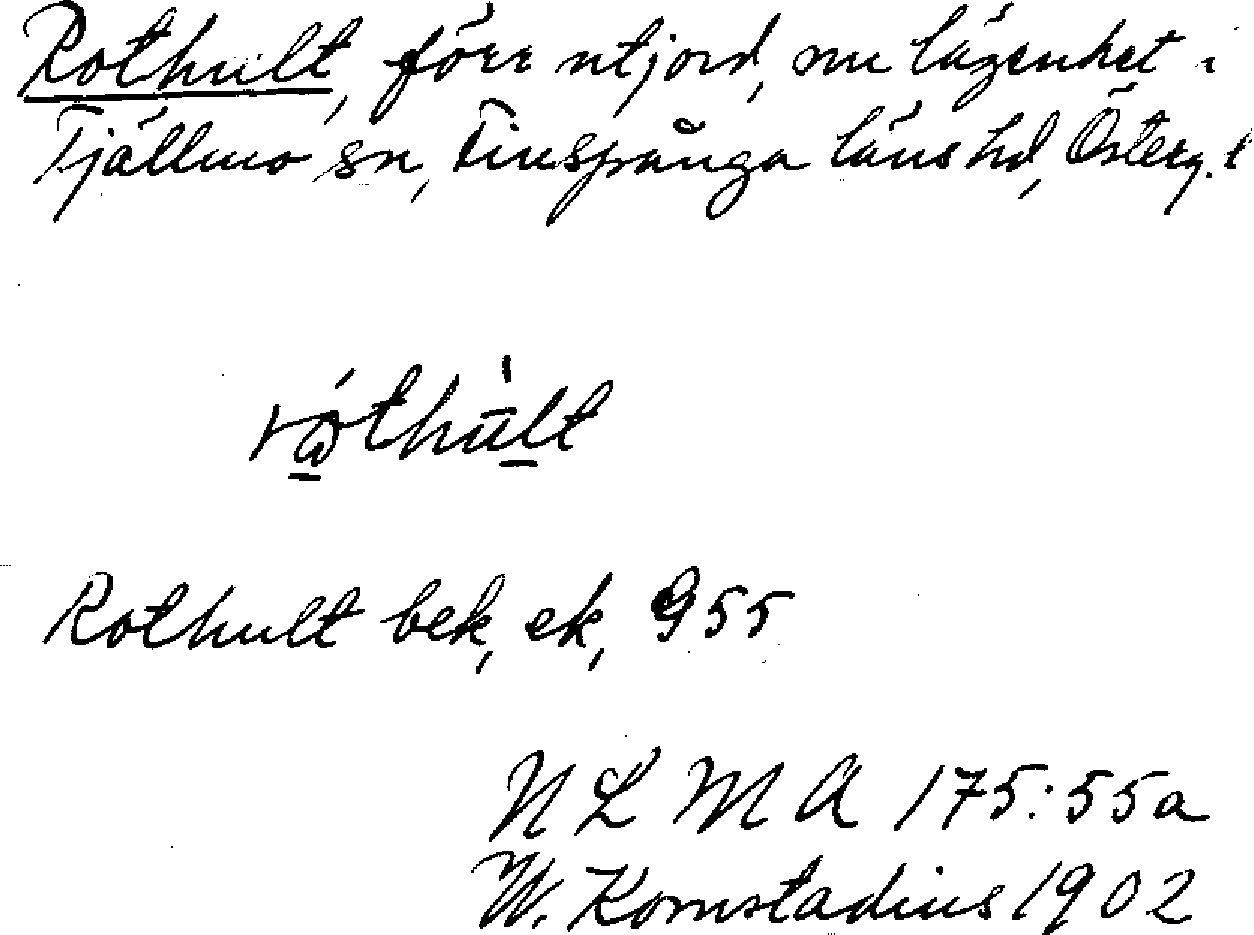 Rothult, förr utjord, nu lägenhet i
Tjällmo sn, Finspånga läns hd, Österg. l
Rothult bek, ek, 955
N L M A 175:55a
W. Kornstadius 1902